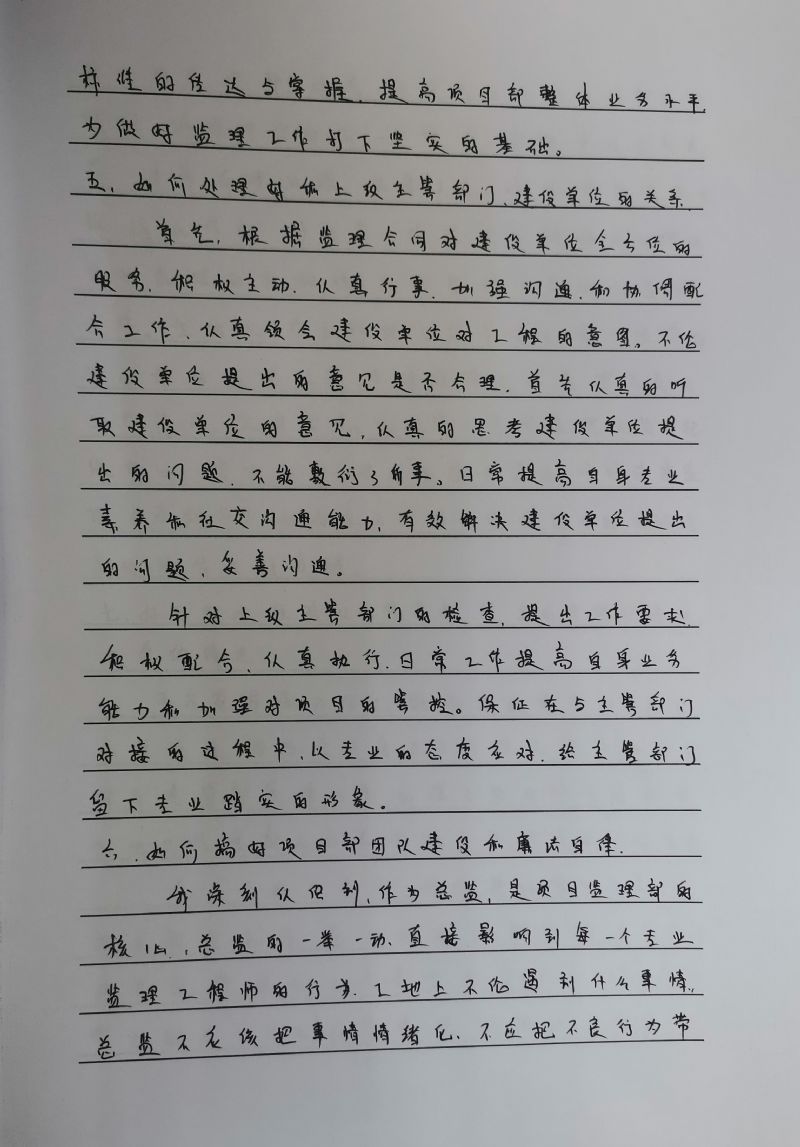 标准的传达与掌握，提高项目部整体业务水平，
为做好监理工作打下坚实的基础。
五、如何处理好和上级主管部门、建设单位的关系
首先，根据监理合同对建设单位全方位的
服务，积极主动，认真行事，加强沟通，和协调配
合工作、认真领会建设单位对工程的意图。不论
建设单位提出的意见是否合理，首先认真的听
取建设单位的意见，认真的思考建设单位提
出的问题，不能敷衍了事。日常提高自身专业
素养和社交沟通能力，有效解决建设单位提出
的问题，妥善沟通。
针对上级主管部门的检查，提出工作要求，
积极配合、认真执行，日常工作提高自身业务
能力和加强对项目的管控。保证在与主管部门
对接的过程中，以专业的态度应对，给主管部门
留下专业踏实的形象。
六、如何搞好项目部团队建设和廉洁自律.
我深刻认识到，作为总监，是项目监理部的
核心，总监的一举一动，直接影响到每一个专业
监理工程师的行为，工地上不论遇到什么事情，
总监不应该把事情情绪化，不应把不良行为带